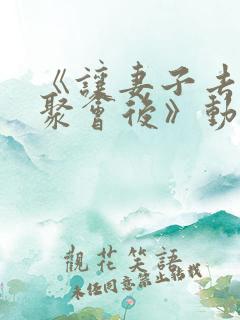 《讓妻子去
聚會後》動
觀花笑語
未經同意禁止轉載